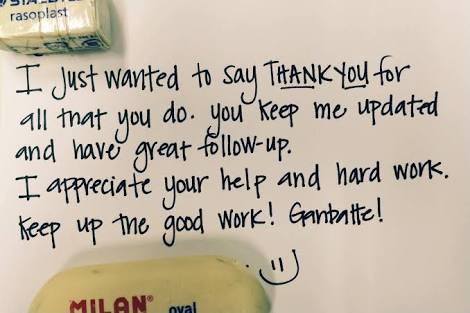 STAEDTLER
rasoplast
I just wanted to say THANK YOU for
all that you do. you keep me updated
and have great follow-up.
I appreciate your help and hard work.
keep up the good work! Ganbatte!
MILAN®
oval